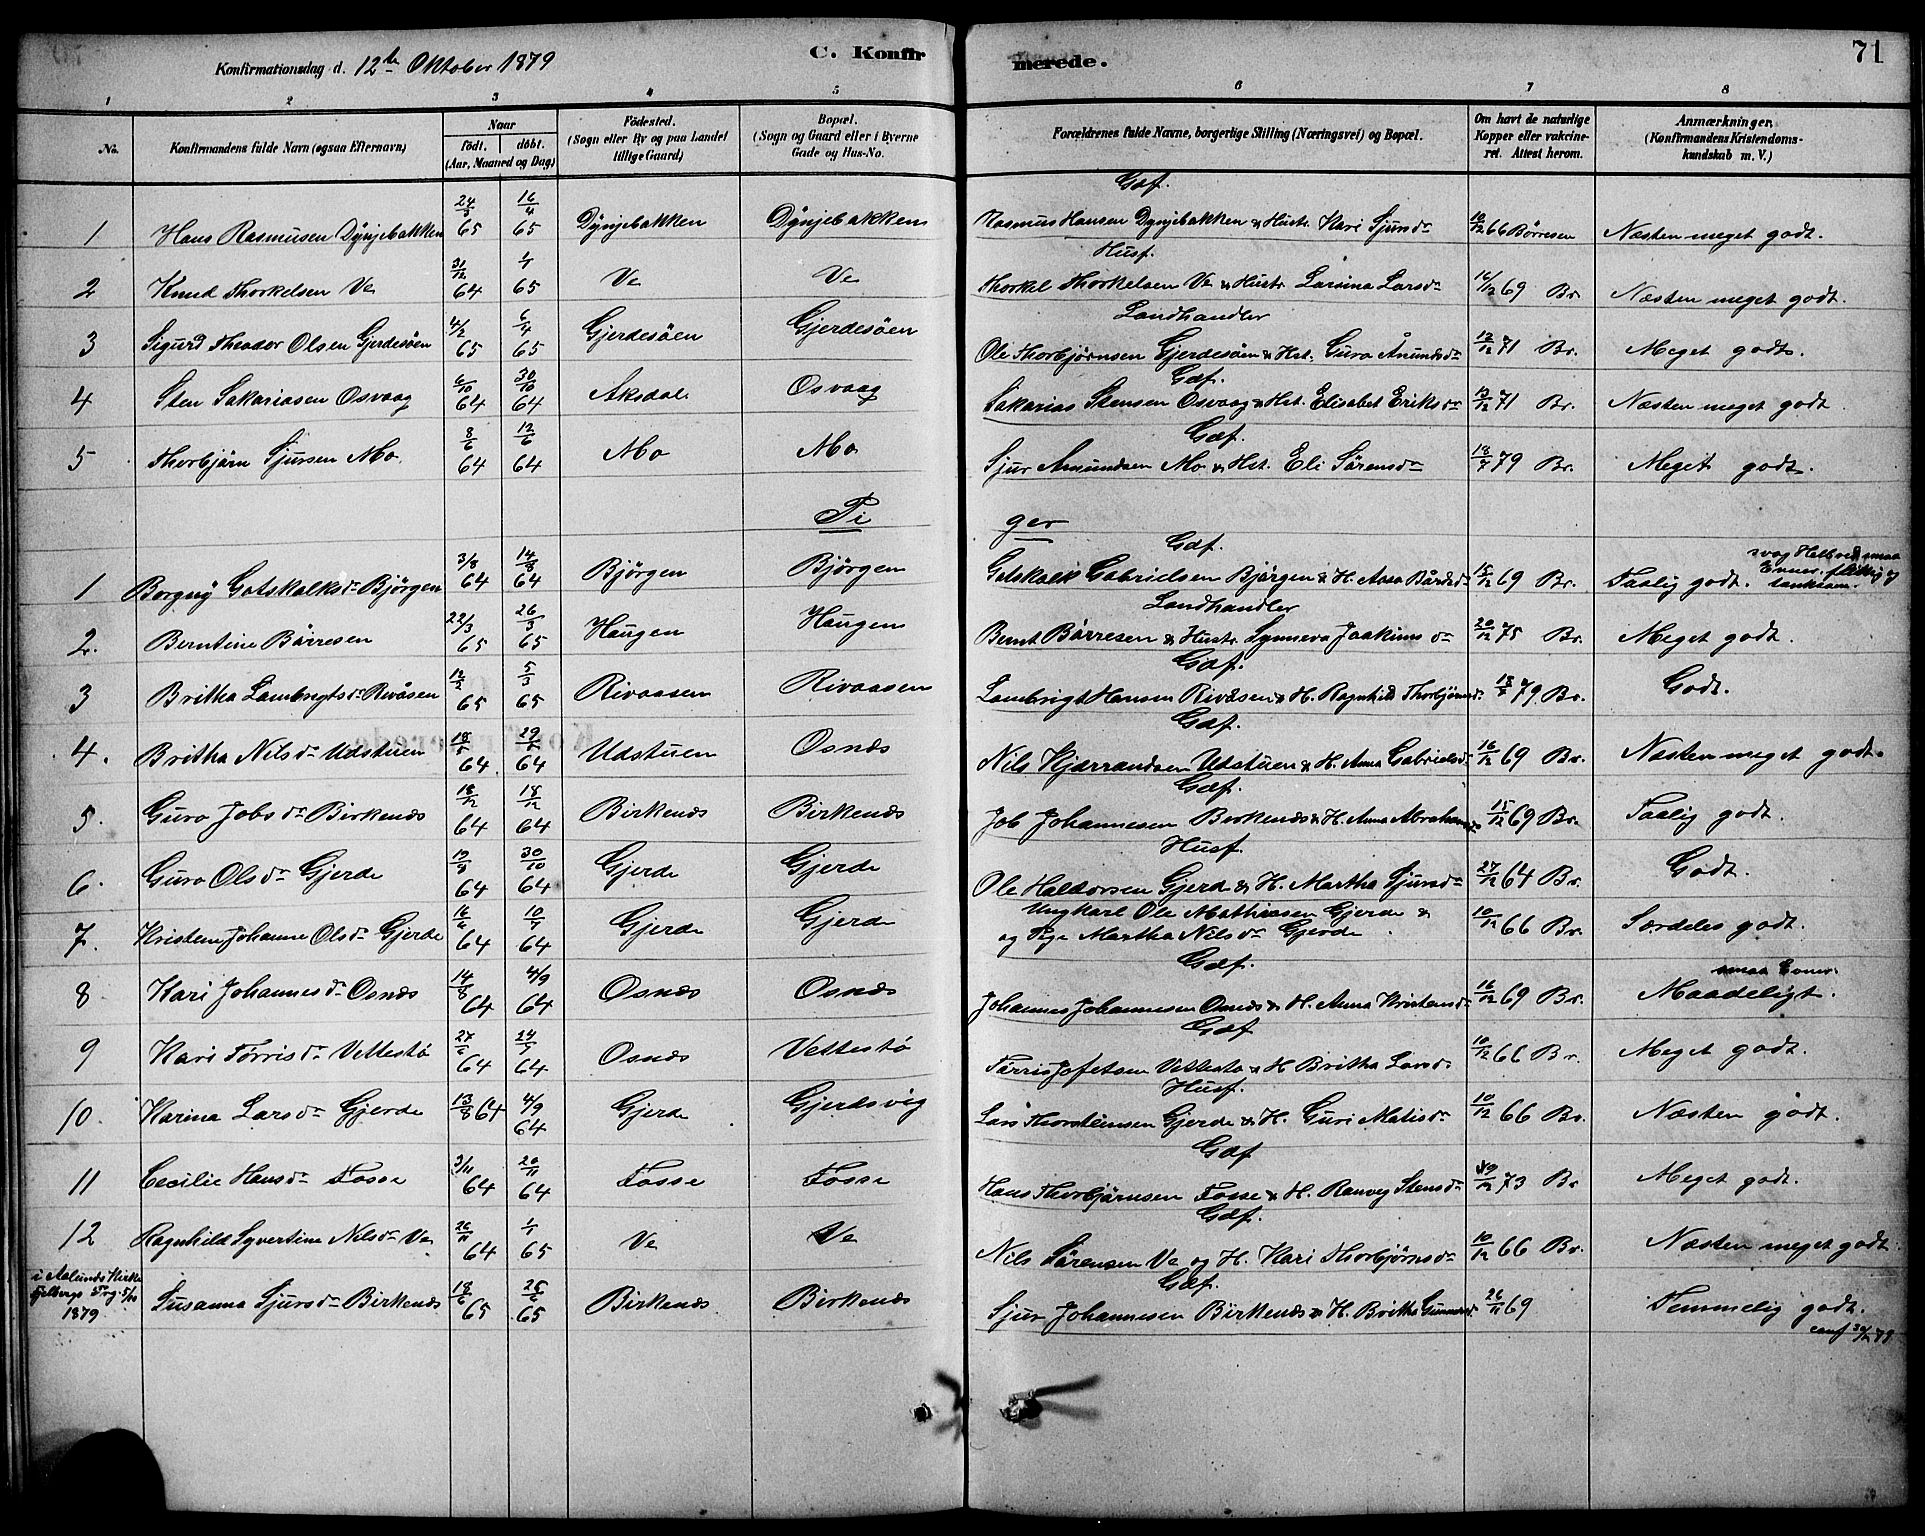 Konfirmationsdag d. 12te Oktober 1879 C. Konfirmerede. 71
1 2 3 4 5 6 7 8
No. Konfirmandens fulde Navn (ogsaa Efternavn) Naar födt. döbt. (Aar, Maaned og Dag) Födested. (Sogn eller By og paa Landet tillige Gaard) Bopæl. (Sogn og Gaard eller i Byerne Gade og Hus-No. Forældrenes fulde Navne, borgerlige Stilling (Næringsvei) og Bopæl. Om havt de naturlige Kopper eller vakcineret. Attest herom. Anmærkninger. (Konfirmandens Kristendomskundskab m. V.)
Gdf.
1 Hans Rasmusen Dÿnjebakken 24/3 65 16/4 65 Dÿnjebakken Dÿnjebakken Rasmus Hansen Dynjebakken & Hustr. Kari Sjursdr 10/12 66 Börresen Næsten meget godt.
Husf.
2 Knud Thorkelsen Ve 31/12 64 1/1 65 Ve Ve Thorkel Thorkelsen Ve & Hustr. Larsina Larsdr 16/12 69 Br. Næsten meget godt.
Landhandler
3 Sigurd Theodor Olsen Gjerdesöen 4/2 65 6/4 65 Gjerdesöen Gjerdesöen Ole Thorbjørnsen Gjerdesöen & Hst. Guro Ånundsdr 12/12 71 Br. Meget godt.
Gdf.
4 Sten Sakariasen Osvaag 6/10 64 30/10 64 Aksdal Osvaag Sakarias Stensen Osvaag & Hst. Elisabet Eriksdr 12/12 71 Br. Næsten meget godt.
Gdf.
5 Thorbjörn Sjursen Mo. 8/6 64 12/6 64 Mo Mo Sjur Amundsen Mo & Hst. Eli Sörensdr 18/7 79 Br. Meget godt.
Piger
Gdf.
1 Borgnÿ Gotskalksdr Bjørgen 3/8 64 14/8 64 Bjørgen Bjørgen Gotskalk Gabrielsen Bjørgen & H. Aasa Bårdsdr 15/12 69 Br. Taalig godt. svag Helbred smaa Evner, flittig og tænksom.
Landhandler
2. Berntine Børresen 22/3 65 26/3 65 Haugen Haugen Bernt Børresen & Hustr. Synneva Joakimsdr 20/12 75 Br. Meget godt.
Gdf.
3 Britha Lambrigtsdr Rivåsen 12/2 65 5/3 65 Rivaasen Rivaasen Lambrigt Hansen Rivåsen & H. Ragnhild Thorbjörnsdr 18/8 79 Br. Godt.
Gdf.
4. Britha Nilsdr Udstuen 18/5 64 29/5 64 Udstuen Osnæs Nils Kjærrandsen Udstuen & H. Anna Gabrielsdr 16/12 69 Br. Næsten meget godt.
Gdf.
5. Guro Jobsdr Birkenæs 18/12 64 18/12 64 Birkenæs Birkenæs Job Johannesen Berkenæs & H. Anna Abrahamsdr 15/12 69 Br. Taalig godt.
Husf.
6. Guro Olsdr Gjerde 19/8 64 30/10 64 Gjerde Gjerde Ole Haldorsen Gjerd & H. Martha Sjursdr 27/12 64 Br. Godt.
7. Kristene Johanne Olsdr Gjerde 16/6 64 10/7 64 Gjerde Gjerde Ungkarl Ole Mathiesen Gjerde & og Pige Martha Nilsdr Gjerde 10/12 66 Br. Særdeles godt.
Gdf.
8 Kari Johannesdr Osnæs 14/8 64 4/9 64 Osnæs Osnæs Johannes Johannesen Osnæs & H. Anna Kristensdr 16/12 69 Br. smaa Evner. Maadeligt.
Gdf
9 Kari Tørrisdr Vettestø 27/6 64 24/7 64 Osnæs Vettestø Tørris Jofetsen Vettestø & H Britha Larsdr 10/12 66 Br. Meget godt.
Husf.
10. Karina Larsdr Gjerde 13/8 64 4/9 64 Gjerde Gjerdsvig Lars Thorsteinsen Gjerde & H. Guri Matisdr 10/12 66 Br. Næsten godt.
Gdf
11 Cecilie Hansdr Fosse 3/11 64 20/11 64 Fosse Fosse Hans Thorbjørnsen Fosse & H. Ranveg Stensdr 73 Br Meget godt.
Gdf.
12 Ragnhild Syvertine Nilsdr Ve 26/11 64 1/1 65 Ve Ve Nils Sørensen Ve og H. Kari Thorbjørnsdr 10/12 66 Br. Næsten meget godt.
Gdf.
i Aalunds Kirke Fjelbergs Prg. 5/10 1879 Susanna Sjursdr Birkenæs 18/6 65 25/6 65 Birkenæs Birkenæs Sjur Johannesen Birkenæs & H. Britha Gunnarsdr 26/11 69 Temmelig godt.